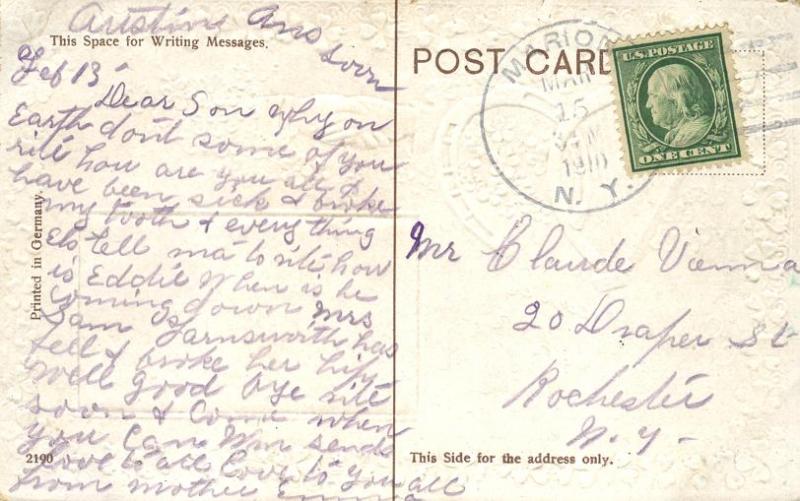 Austin Ans
soon
This Space for Writing Messages.
Feb 13
Dear Son why on
Earth dont some of you
rite how are you all I
have been sick & broke
my tooth & everything
Els tell ma to rite, how
is Eddie When is he
coming down Mrs
Sam Farnsworth has
fell & broke her hip
Well good bye rite
soon & Come when
you Can Wm sends
love to all Love to you all
from mother Emma
Printed in Germany.
2190
POST CARD
MARION
MAR
15
1910
N. Y.
U.S. POSTAGE
ONE CENT
Mr Claude Vienna
20 Draper St
Rochester
N. Y.
This Side for the address only.